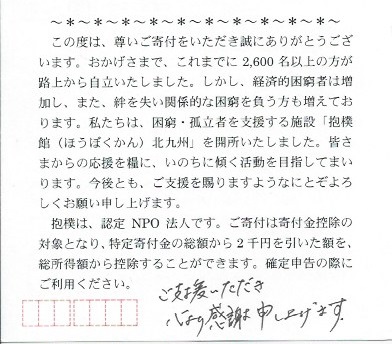 ～＊～＊～＊～＊～＊～＊～＊～＊～＊～＊～
この度は、尊いご寄付をいただき誠にありがとうござ
います。おかげさまで、これまでに 2,600 名以上の方が
路上から自立いたしました。しかし、経済的困窮者は増
加し、また、絆を失い関係的な困窮を負う方も増えてお
ります。私たちは、困窮・孤立者を支援する施設「抱樸
館（ほうぼくかん）北九州」を開所いたしました。皆さ
まからの応援を糧に、いのちに傾く活動を目指してまい
ります。今後とも、ご支援を賜りますようなにとぞよろ
しくお願い申し上げます。
抱樸は、認定 NPO 法人です。ご寄付は寄付金控除の
対象となり、特定寄付金の総額から２千円を引いた額を、
総所得額から控除することができます。確定申告の際に
ご利用ください。
ご支援いただき
心より感謝申し上げます